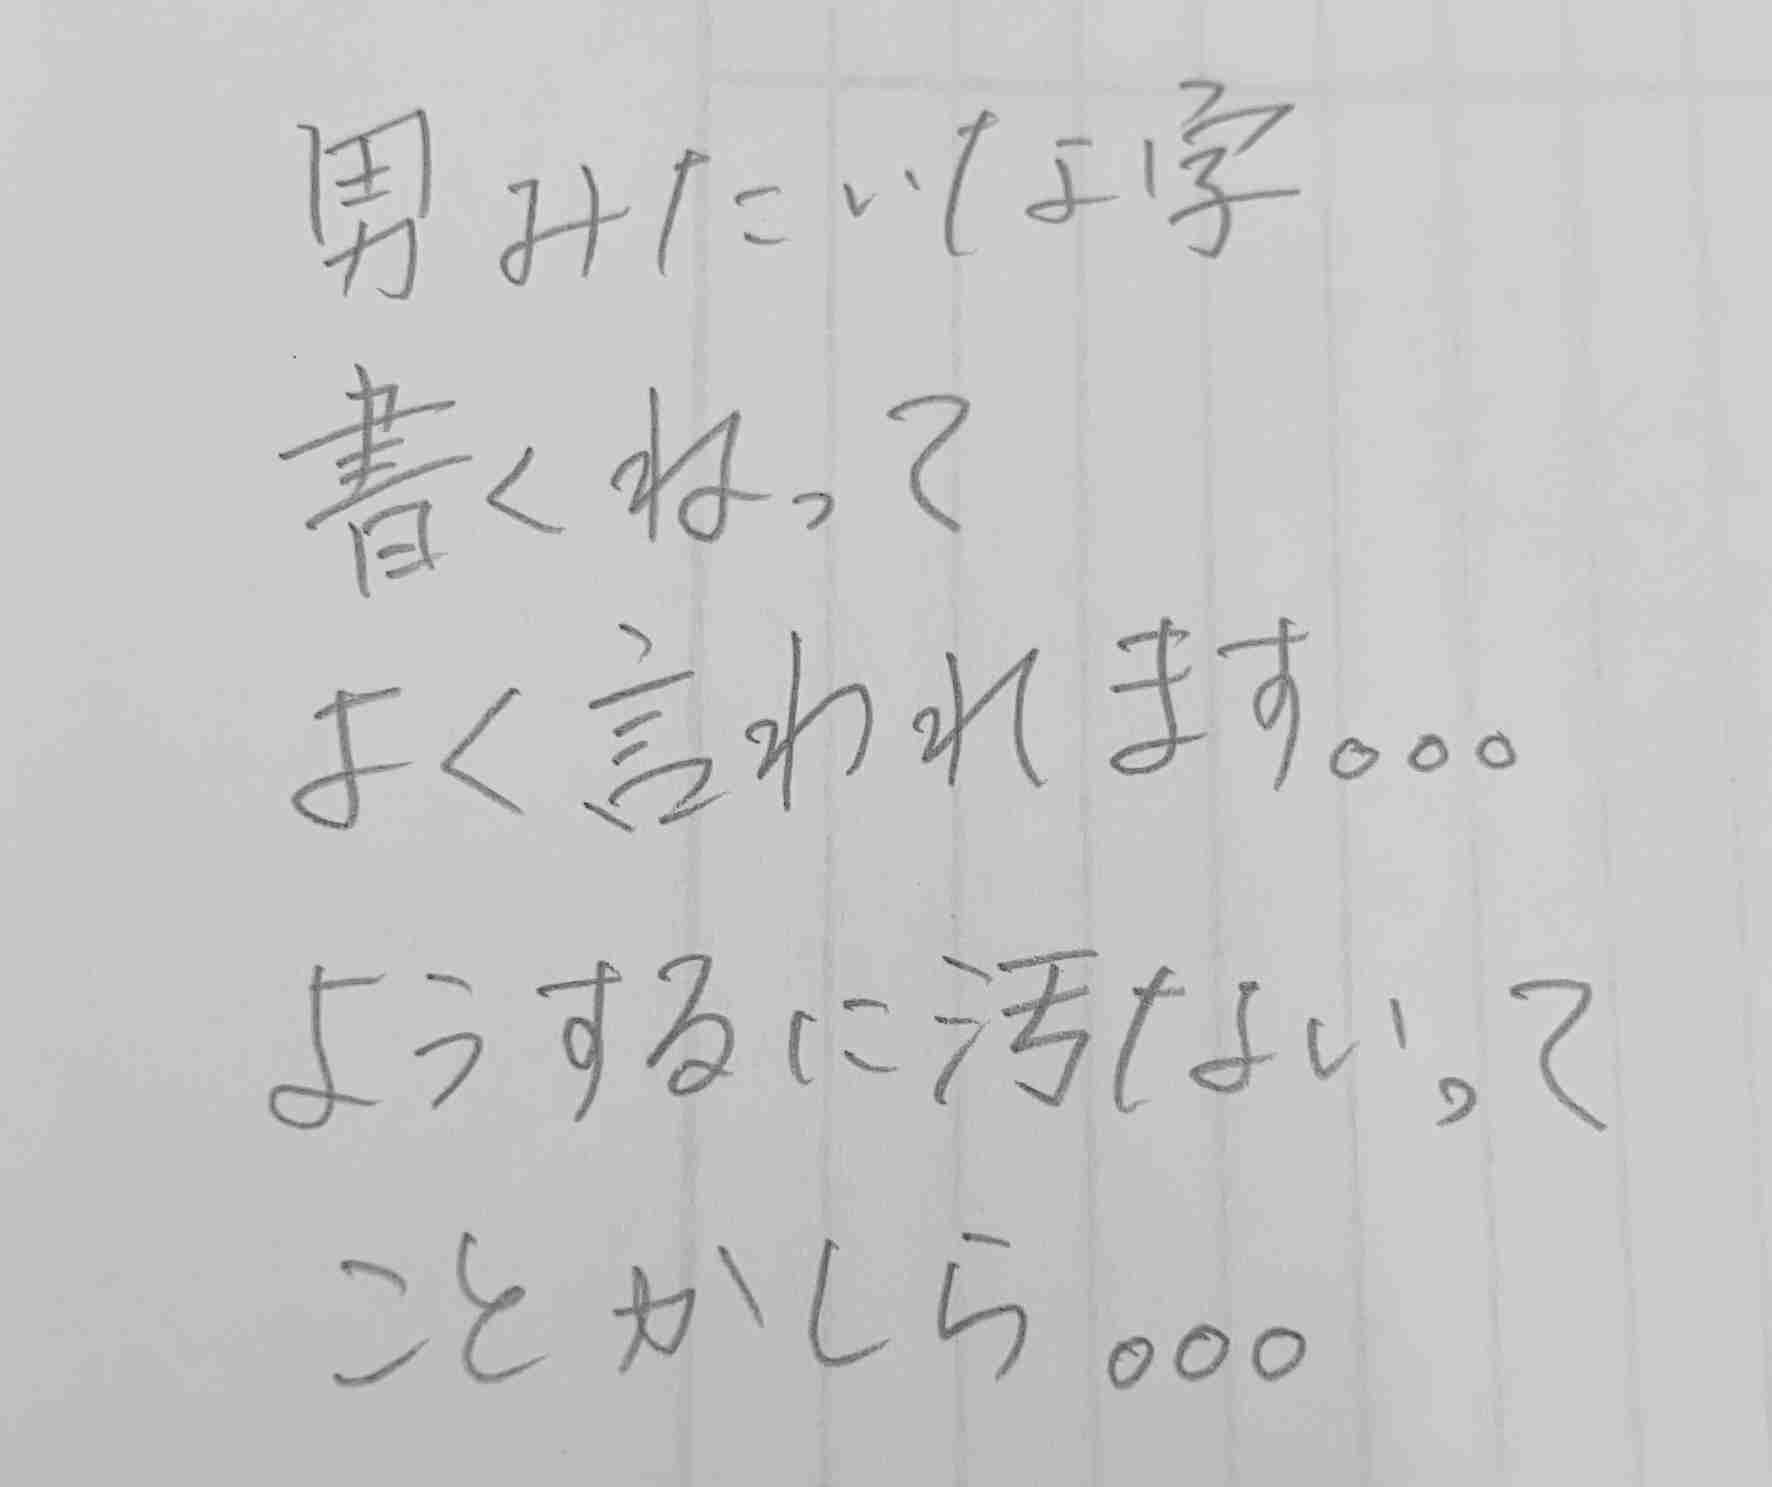 男みたいな字
書くねって
よく言われます。。。
ようするに汚ないって
ことかしら。。。